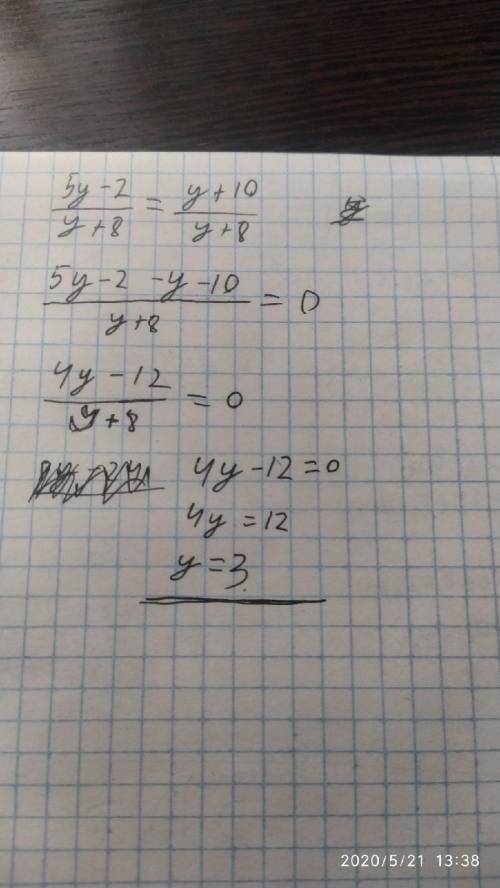 5y-2/y+8 = y+10/y+8
5y-2-y-10/y+8 = 0
4y-12/y+8 = 0
4y-12=0
4y=12
y=3
2020/5/21 13:38